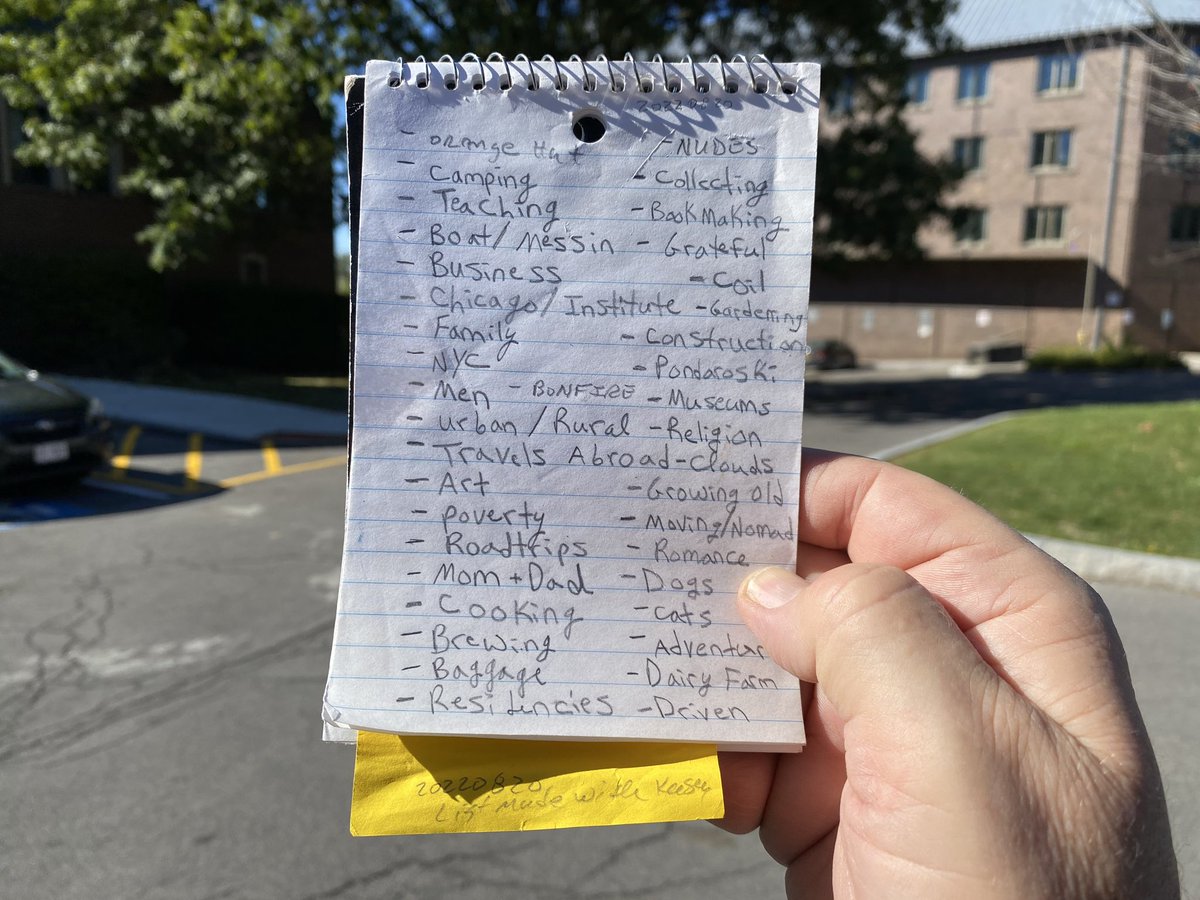 20220820
- orange Hat - NUDES
- Camping - Collecting
- Teaching - BookMaking
- Boat/Messin - Grateful
- Business - Coil
- Chicago/Institute - Gardening
- Family - Construction
- NYC - Pondaroski
- Men - BONFIRE - Museums
- urban/Rural - Religion
- Travels Abroad - Clouds
- Art - Growing old
- poverty - Moving/Nomad
- Roadtrips - Romance
- Mom + Dad - Dogs
- Cooking - Cats
- Brewing - Adventur
- Baggage - Dairy Farm
- Residencies - Driven
20220820
List Made with Kasey